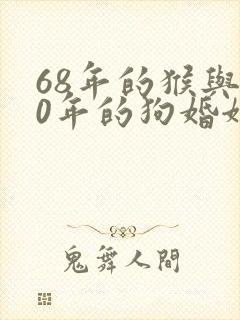 68年的猴與
0年的狗婚
鬼舞人間